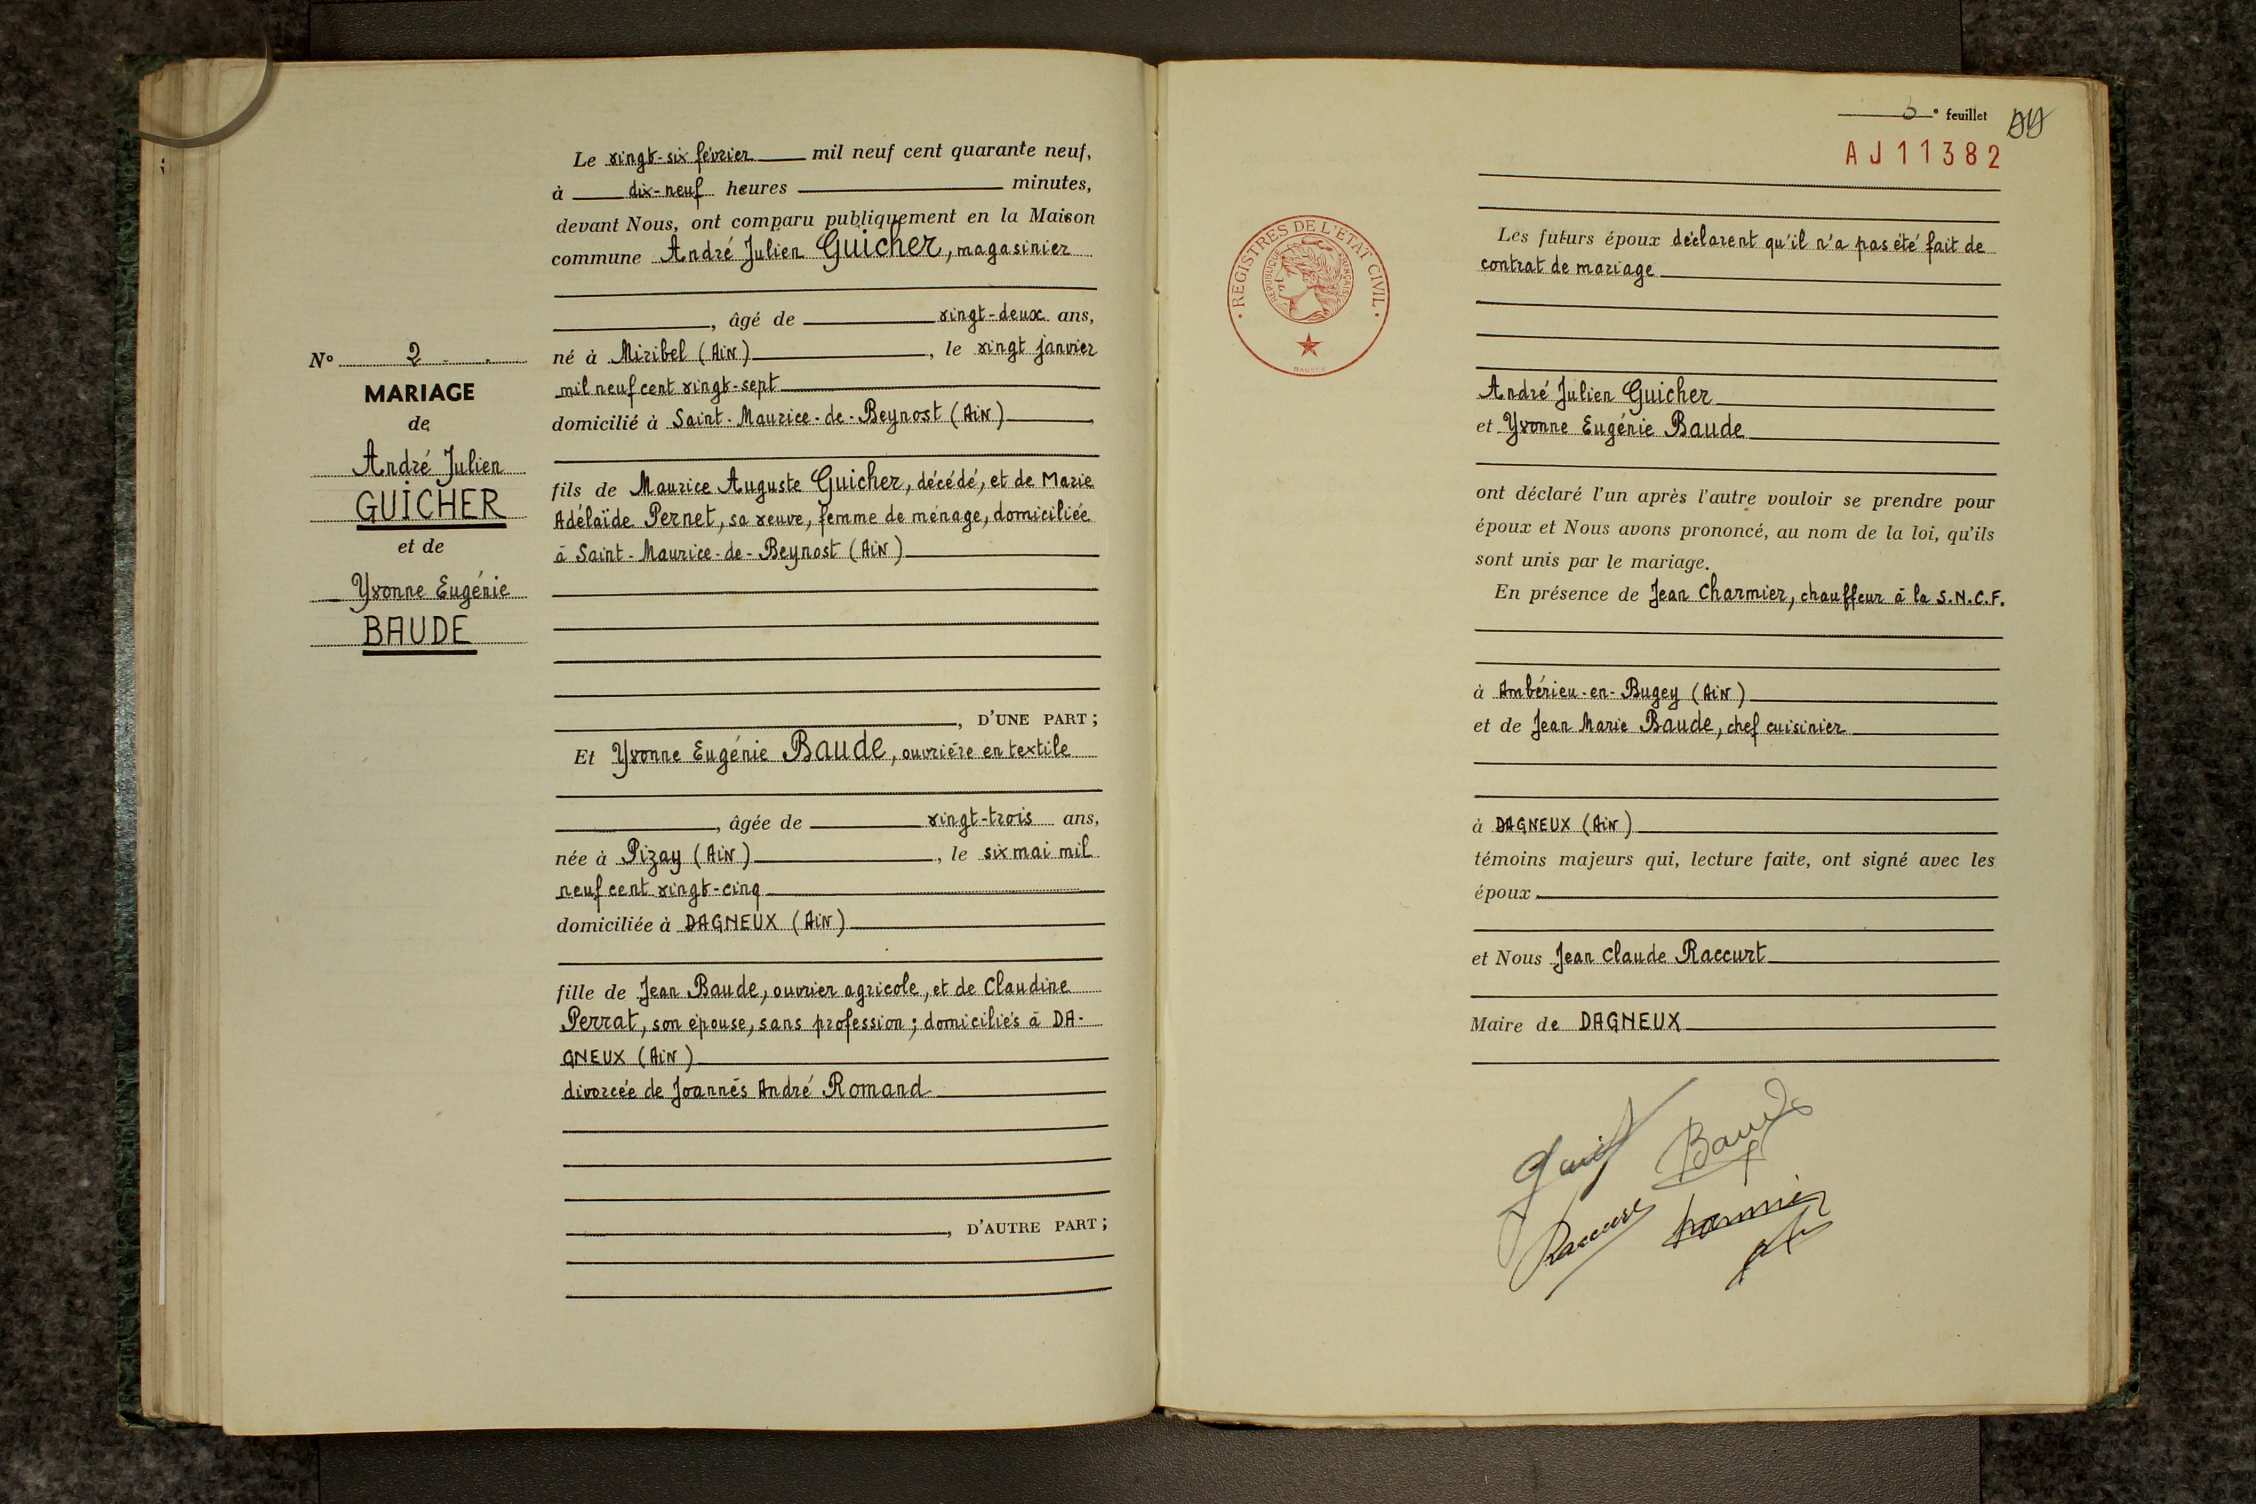 Le vingt-six février mil neuf cent quarante neuf,
à dix-neuf heures minutes,
devant Nous, ont comparu publiquement en la Maison
commune André Julien Guicher, magasinier
, âgé de vingt-deux ans,
né à Miribel (AiN), le vingt janvier
mil neuf cent vingt-sept
domicilié à Saint-Maurice-de-Beynost (AiN)
fils de Maurice Auguste Guicher, décédé, et de Marie
Adélaïde Pernet, sa veuve, femme de ménage, domiciliée
à Saint-Maurice-de-Beynost (AiN)
, D'UNE PART ;
Et Yvonne Eugénie Baude, ouvrière en textile
, âgée de vingt-trois ans,
née à Pizay (AiN), le six mai mil
neuf cent vingt-cinq
domiciliée à DAGNEUX (AiN)
fille de Jean Baude, ouvrier agricole, et de Claudine
Perrat, son épouse, sans profession ; domiciliés à DA-
GNEUX (AiN)
divorcée de Joannès André Romand
, D'AUTRE PART ;
N° 2
MARIAGE
de
André Julien
GUICHER
et de
Yvonne Eugénie
BAUDE
e feuillet
AJ11382
REGISTRES DE L'ÉTAT CIVIL
RÉPUBLIQUE FRANÇAISE
Les futurs époux déclarent qu'il n'a pas été fait de
contrat de mariage
André Julien Guicher
et Yvonne Eugénie Baude
ont déclaré l'un après l'autre vouloir se prendre pour
époux et Nous avons prononcé, au nom de la loi, qu'ils
sont unis par le mariage.
En présence de Jean Charmier, chauffeur à la S.N.C.F.
à Ambérieu-en-Bugey (AiN)
et de Jean Marie Baude, chef cuisinier
à DAGNEUX (AiN)
témoins majeurs qui, lecture faite, ont signé avec les
époux
et Nous Jean Claude Raccurt
Maire de DAGNEUX
Baude
Raccurt